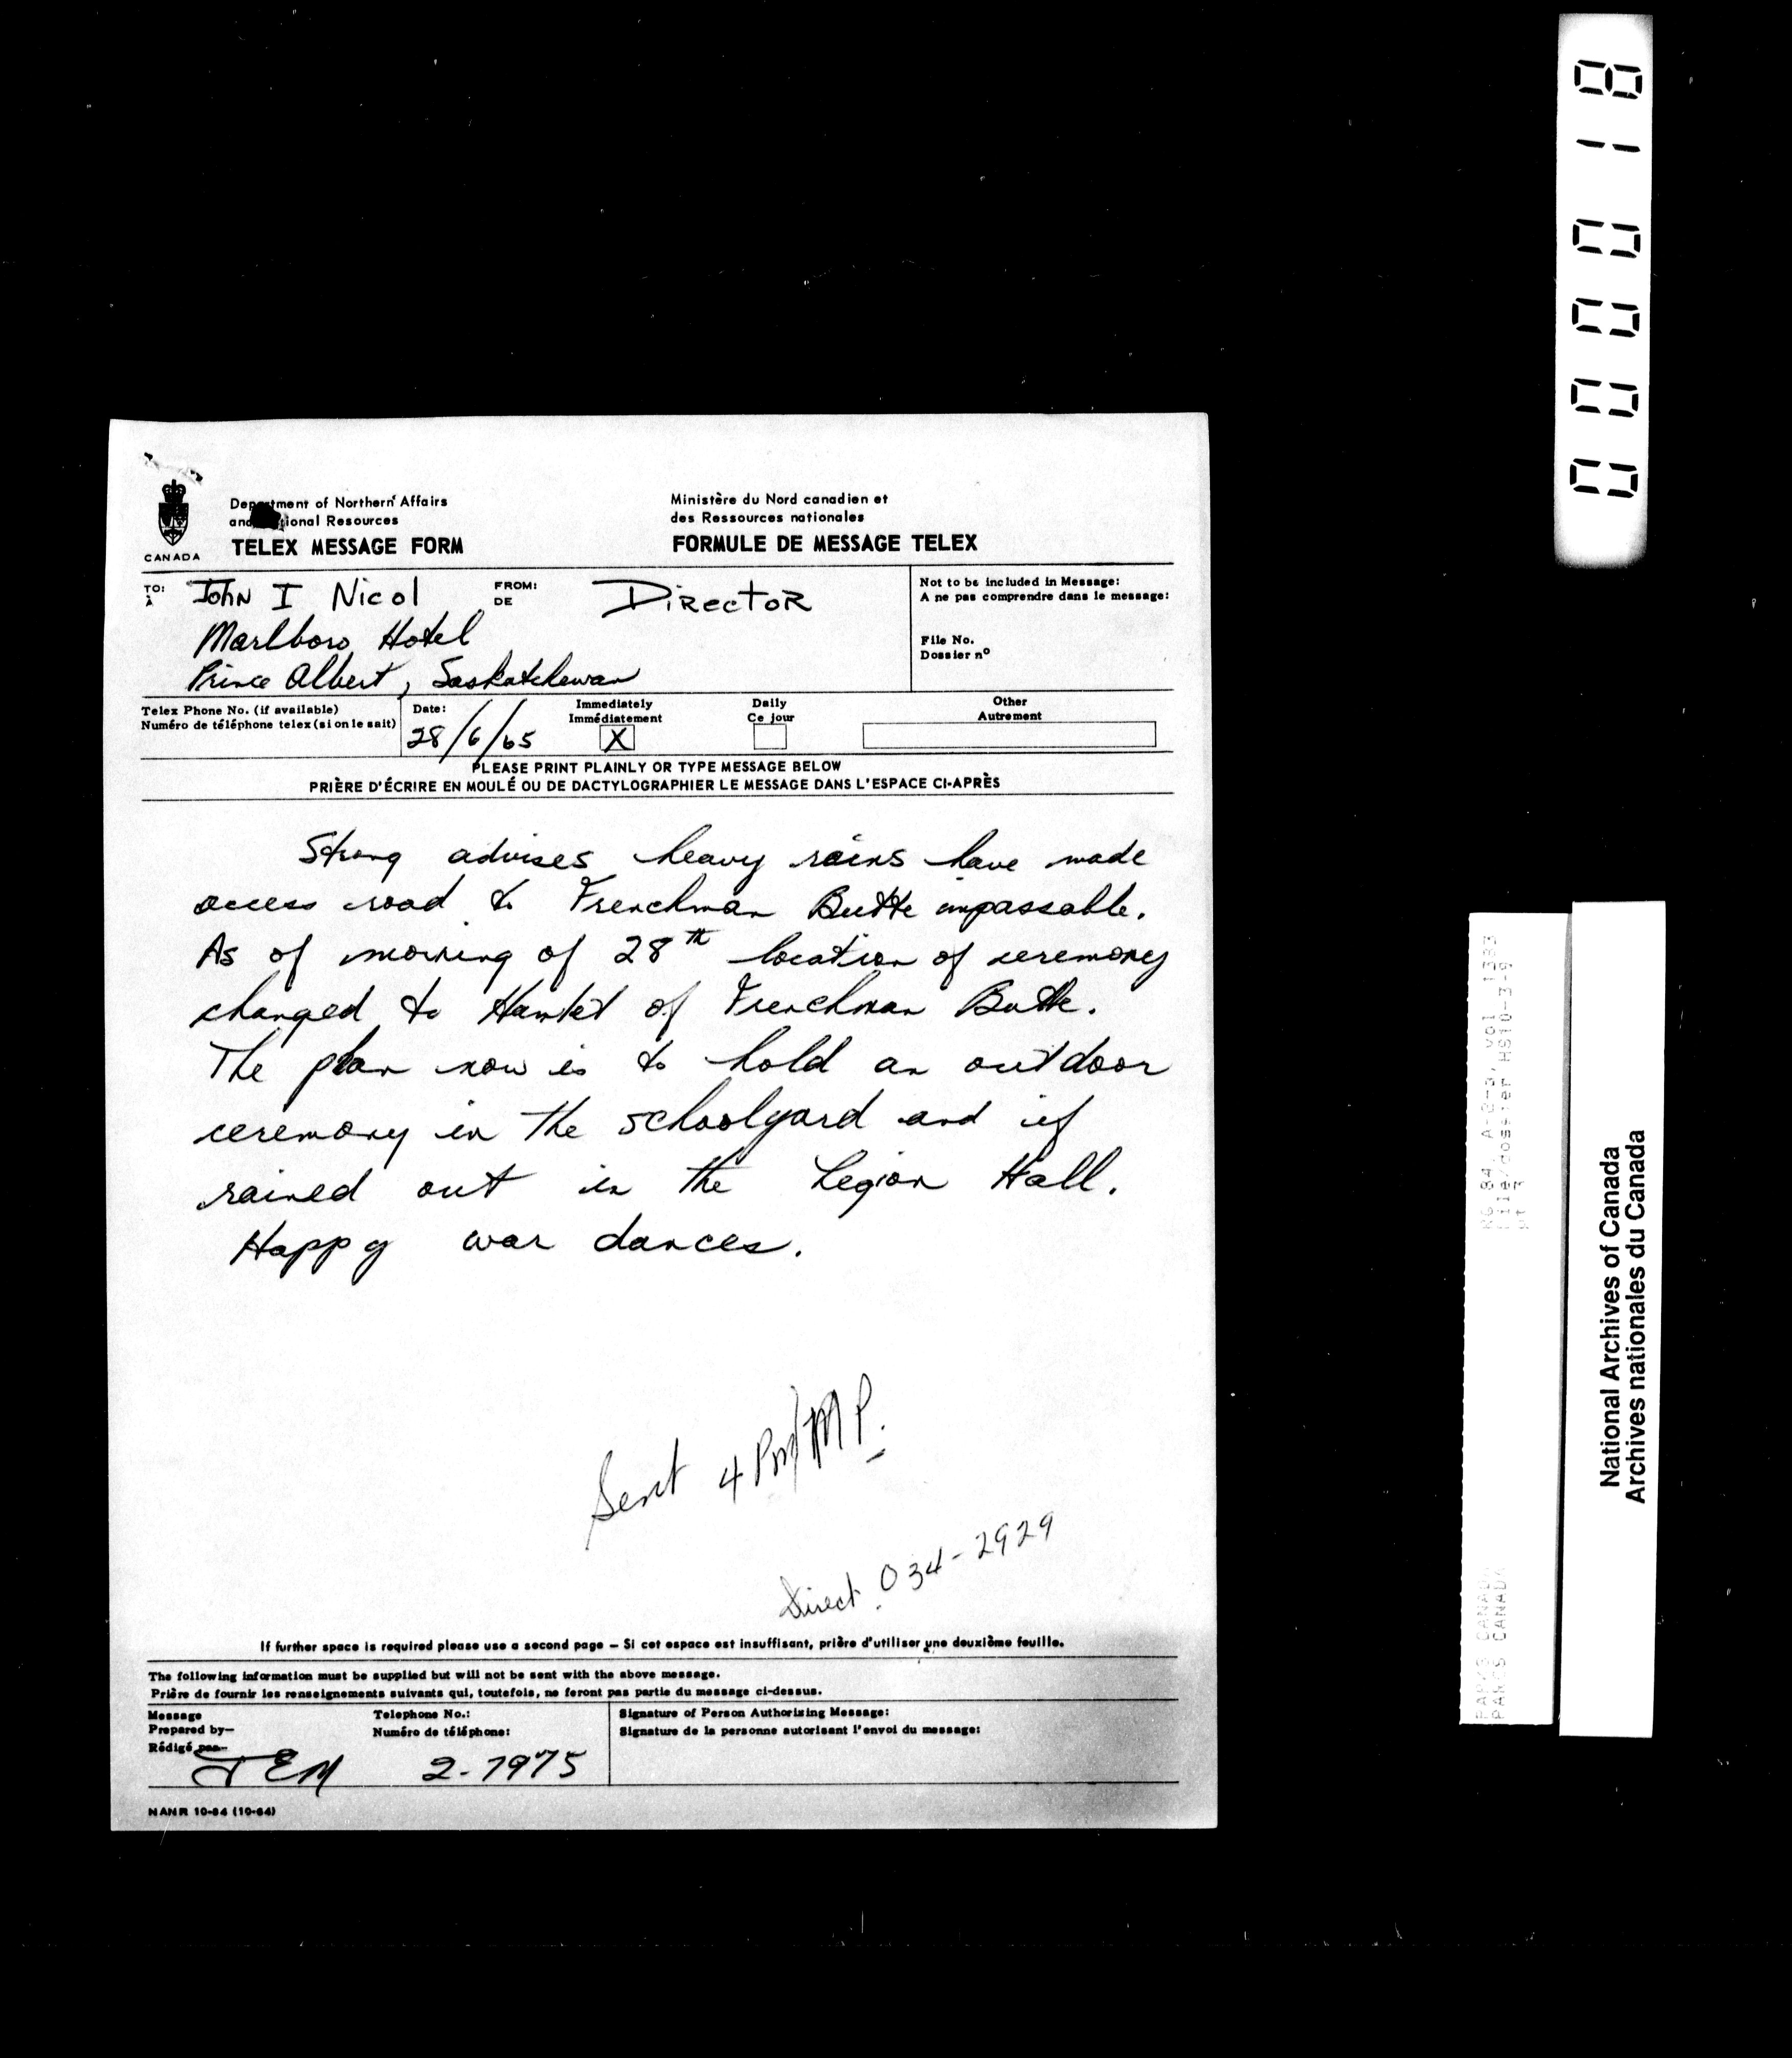 000018
Department of Northern Affairs
and National Resources
TELEX MESSAGE FORM
CANADA
Ministère du Nord canadien et
des Ressources nationales
FORMULE DE MESSAGE TELEX
TO:
À
John I Nicol
Marlboro Hotel
Prince Albert, Saskatchewan
FROM:
DE
Director
Not to be included in Message:
A ne pas comprendre dans le message:
File No.
Dossier nº
Telex Phone No. (if available)
Numéro de téléphone telex (si on le sait)
Date:
28/6/65
Immediately
Immédiatement
X
Daily
Ce jour
Other
Autrement
PLEASE PRINT PLAINLY OR TYPE MESSAGE BELOW
PRIÈRE D'ÉCRIRE EN MOULÉ OU DE DACTYLOGRAPHIER LE MESSAGE DANS L'ESPACE CI-APRÈS
Strong advises heavy rains have made
access road to Frenchman Butte impassable.
As of morning of 28th location of ceremony
changed to Hamlet of Frenchman Butte.
The plan now is to hold an outdoor
ceremony in the schoolyard and if
rained out in the Legion Hall.
Happy war dances.
Sent 4 PM/MP.
Direct. 034-2929
If further space is required please use a second page – Si cet espace est insuffisant, prière d'utiliser une deuxième feuille.
The following information must be supplied but will not be sent with the above message.
Prière de fournir les renseignements suivants qui, toutefois, ne feront pas partie du message ci-dessus.
Message
Prepared by—
Rédigé par—
JEM
Telephone No.:
Numéro de téléphone:
2-7975
Signature of Person Authorizing Message:
Signature de la personne autorisant l'envoi du message:
NANR 10-84 (10-64)
RG 84, A-2-a, vol 1383
file/dossier HS10-3-9
pt 3
PARKS CANADA
PARCS CANADA
National Archives of Canada
Archives nationales du Canada